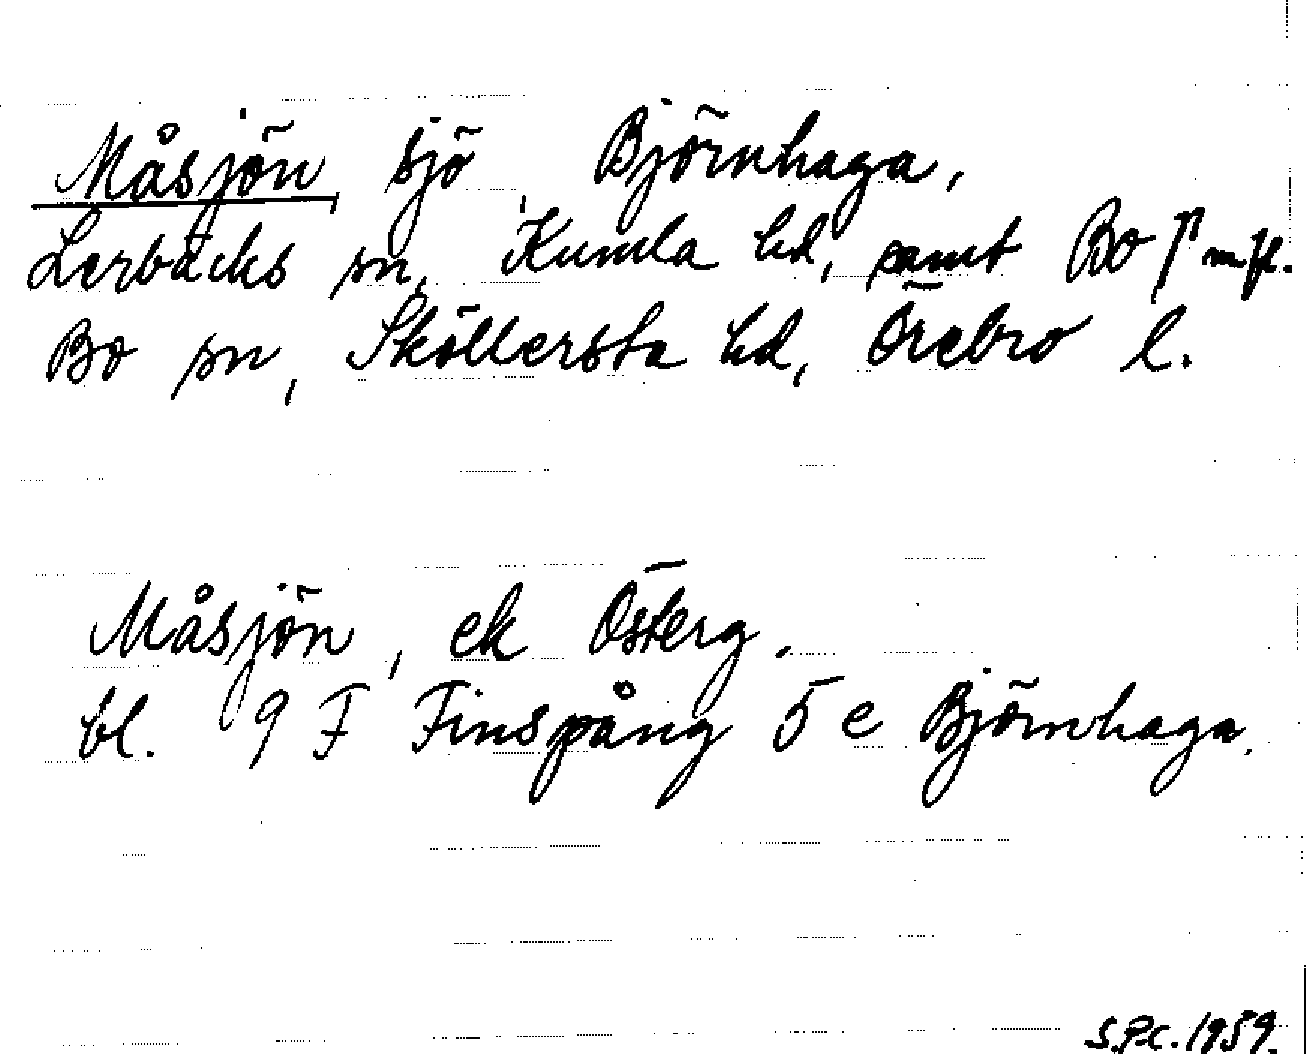 Måsjön, sjö, Björnhaga,
Lerbäcks sn, Kumla hd, samt Bo ⌈ m.fl.
Bo sn, Sköllersta hd, Örebro l.
Måsjön, ek Österg.
bl. 9 F Finspång 5 e Björnhaga.
S.P.C. 1959.